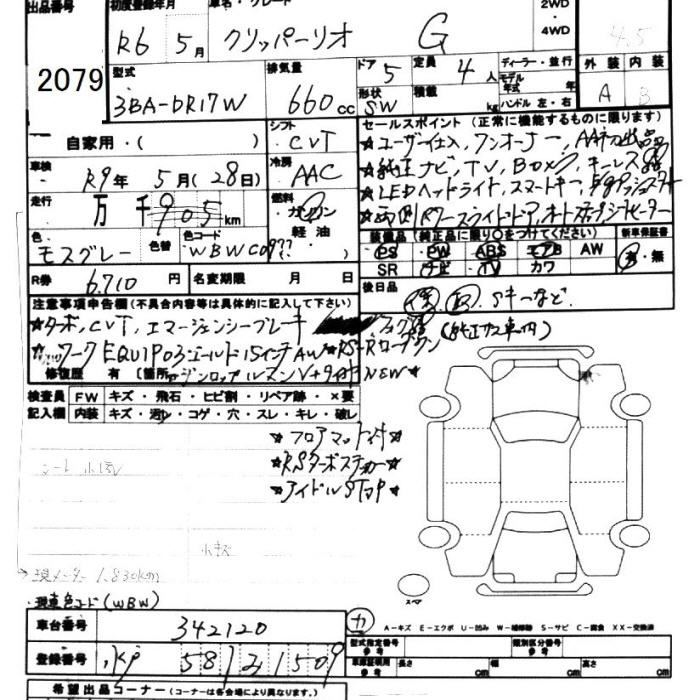 出品番号
2079
初度登録年月
R6 5月
車名・グレード
クリッパーリオ G
2WD
・
4WD
4.5
型式
3BA-DR17W
排気量
660cc
ドア 5
形状 SW
定員 4人
積載 kg
ディーラー・並行
モデル年式 年
ハンドル 左・右
外装 内装
A B
自家用・( )
シフト
CVT
車検
R9年 5月 (28日)
冷房
AAC
走行
万 千 905 km
燃料
ガソリン
軽油
色
モスグレー
色替
色コード
WBWC09??
R券
6,710円
名変期限 月 日
セールスポイント (正常に機能するものに限ります)
★ユーザー仕入,ワンオーナー,AA初出品
★純正ナビ,TV,BOXク,キーレス
★LEDヘッドライト,スマートキー,
★両側パワースライドドア,
装備品 (純正品に限り○をつけてください)
PS ・ PW ABS エアB AW
SR ナビ TV カワ
新車保証書
有・無
後日品
保 取 Sキーなど
注意事項申告欄 (不具合内容等は具体的に記入して下さい)
★ターボ,CVT,エマージェンシーブレーキ
(純正カエ車内)
ワーク EQUIP03ゴールド15インチAW★RS-Rローダウン
修復歴 有 (箇所
NEW★
検査員 FW キズ・飛石・ヒビ割・リペア跡・×要
記入欄 内装 キズ・汚レ・コゲ・穴・スレ・キレ・破レ
★フロアマット付
★RSターボステッカー★
★アイドルSTOP★
シート
小キズ
→現メーター 1,830km
・現車色コード(WBW)
スペア
A-キズ E-エクボ U-凹み W-補修跡 S-サビ C-腐食 XX-交換済
車台番号
342120
登録番号
58 21509
カ
型式指定番号
参考
類別区分番号
参考
車庫証明用
参考
長さ cm
幅 cm
高さ cm
希望出品コーナー (コーナーは各会場により異なります。)